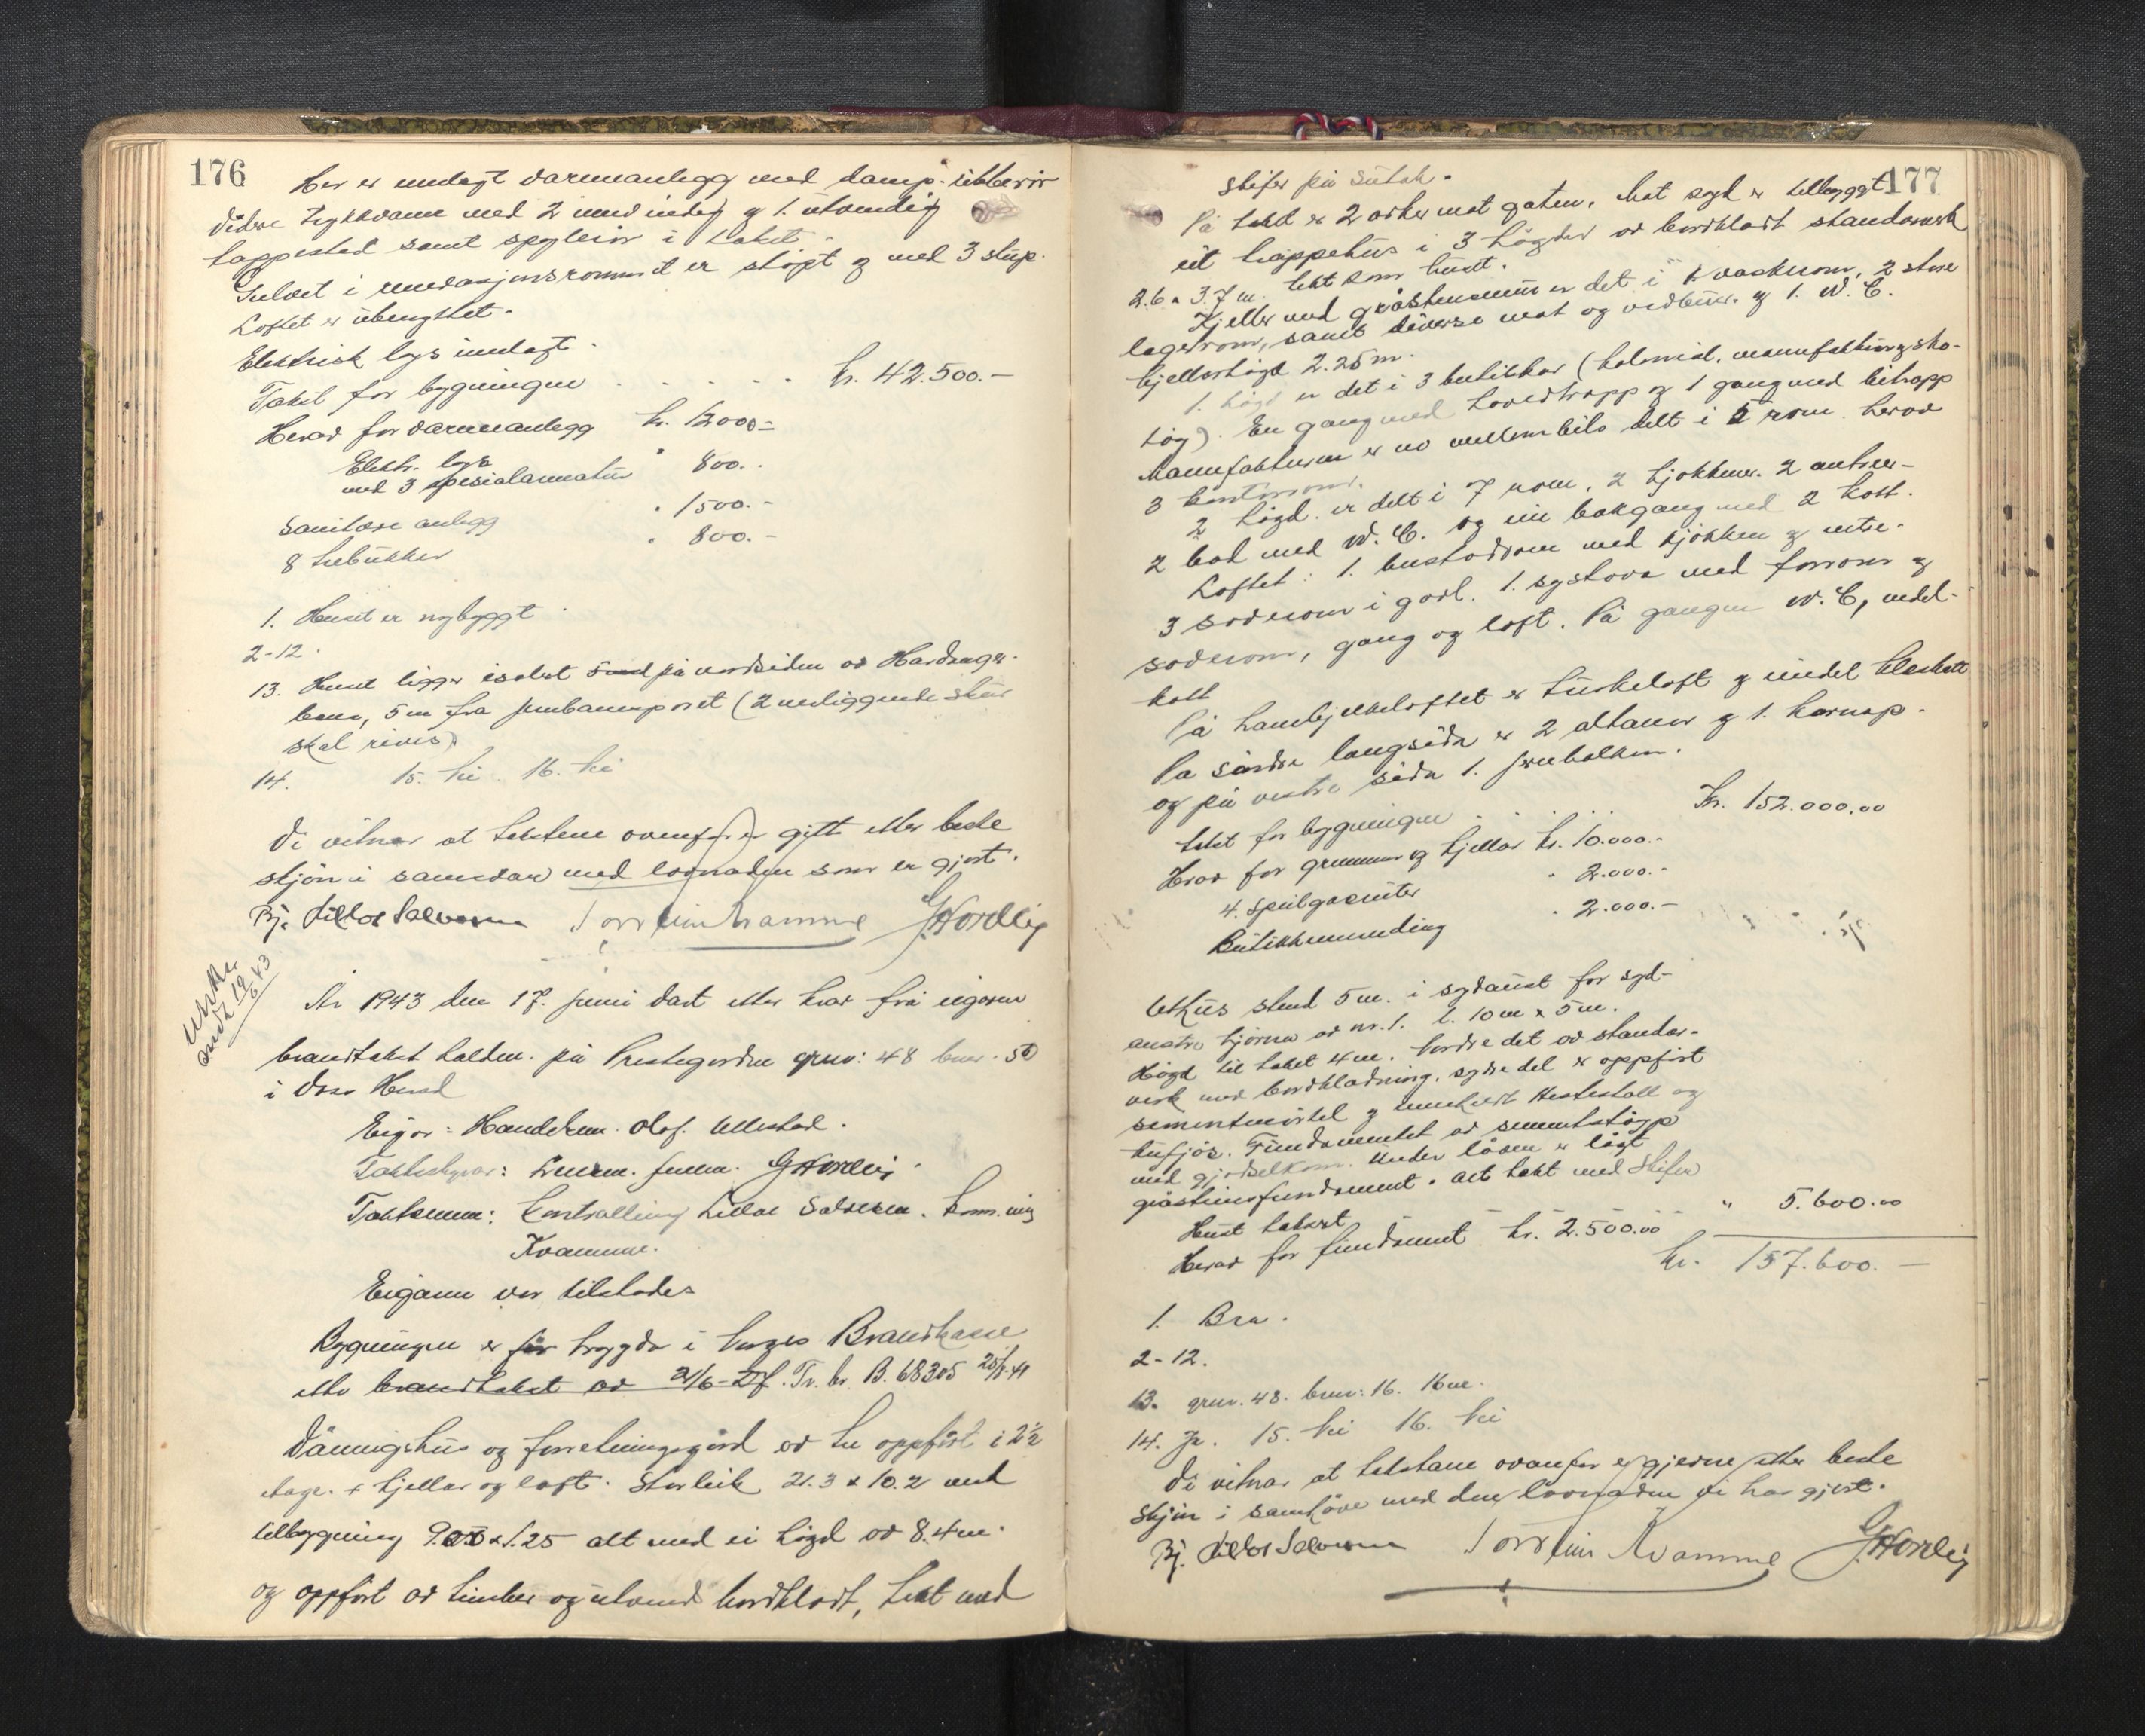 176
Her er innlagt varmeanlegg med damp.
vidare trykkvann med 2 innvendig og 1. utvendig
tappested samt i taket.
Gulvet i er støpt og med 3 stup.
Loftet er ubenyttet.
Elektrisk lys innlagt.
Takst for bygningen . . . . . kr. 42.500.-
Herav for varmeanlegg kr. 12000=
Elektr. lys
med 3 spesialarmatur " 800.-
Sanitære anlegg " 1500.-
8 trebukker " 800.-
1. Huset er nybyggt.
2-12.
13. Huset ligger isolert på nordsiden av Hardanger-
bana, 5 m fra jernbanesporet (2 skur
skal rives).
14. 15. Nei. 16. Nei
Vi vitnar at takstene ovenfor er gitt etter beste
skjøn i samsvar med lovnaden som er gjort.
Bj. Lillos Salvesen Torstein Kvamme G Hordvig
År 1943 den 17. juni vart etter krav frå eigaren
brandtakst halden på Prestegarden grnr: 48 bnr. 50
i Voss Herad
Eigar: Handelsm. Olaf Ullestad.
Takststyrar: Lensm. fullm. G Hordvig.
Takstmenn: Lillos Salvesen.
Kvamme.
Eigaren var tilstades
Bygningen er før trygda i Norges Brandkasse
etter brandtakst av 21/6-27. Tr. br. B. 68305
Våningshus og forretningsgård av tre oppført i 2½
etage. + kjellar og loft. Storleik 21.3 x 10.2 med
tilbygning x 1.25 alt med ei høgd av 8.4 m.
og oppført av timber og utvend. bordkledt, tekt med
177
skifer på sutak.
På taket er 2 arker mot gaten. Mot syd er tilbyggt
eit trappehus i 3 høgder av bordkledt standarverk
2.6 x 3.7 m. tekt som huset.
Kjeller med gråsteinsmur er det i 1 vaskerom, 2 store
lagerrom, samt diverse mat og vedbuer og 1. W. C.
Kjellerhøgd 2.25 m.
1. høgd er det i 3 butikkar (kolonial, manufaktur og sko-
tøy). En gang med hovedtrapp og 1 gang med bitrapp
Manufakturen er no mellembils delt i 5 rom herav
3 kontorrom.
2 høgd. er delt i 7 rom, 2 kjøkken. 2 entreer-
2 bad med W. C. og ein bakgang med 2 kott.
Loftet: 1. bustadrom med kjøkken og entre.
3 soverom i gavl. 1. systova med forrom og
soverom, gang og loft. På gangen W. C, vedel-
kott
På hanebjelkeloftet er turkeloft og inndel kleskott
På søndre langsida er 2 altaner og 1. karnap.
og på vestre sida 1. balkon.
Takst for bygningen . . . . Kr. 152.000.00
Herav for grunnmur og kjellar kr. 10.000.-
4. " 2.000.-
Butikkinnreiing " 2.000.-
Uthus stend 5 m. i sydaust for syd-
austre hjørna av nr. 1. l. 10 m x 5 m.
Høgd til taket 4 m. Nordre del av standar-
verk med bordkledning. sydre del er oppført
sementmørtel og innehold hestestall og
kufjøs. Fundamentet av sementstøyp
med gjødselkum. Under låven er lågt
gråsteinsfundament. Alt tekt med Skifer
Huset takert " 5.600.00
Herav for fundament kr. 2.500.00
kr. 157.600.-
1. Bra.
2-12.
13. grnr. 48. bnr: 16. 16 m.
14. Ja. 15. Nei 16. Nei
Vi vitnar at takstane ovanfor er gjevne etter beste
skjøn i samhøve med den lovnaden vi har gjort.
Bj. Lillos Salvesen Torstein Kvamme G Hordvig